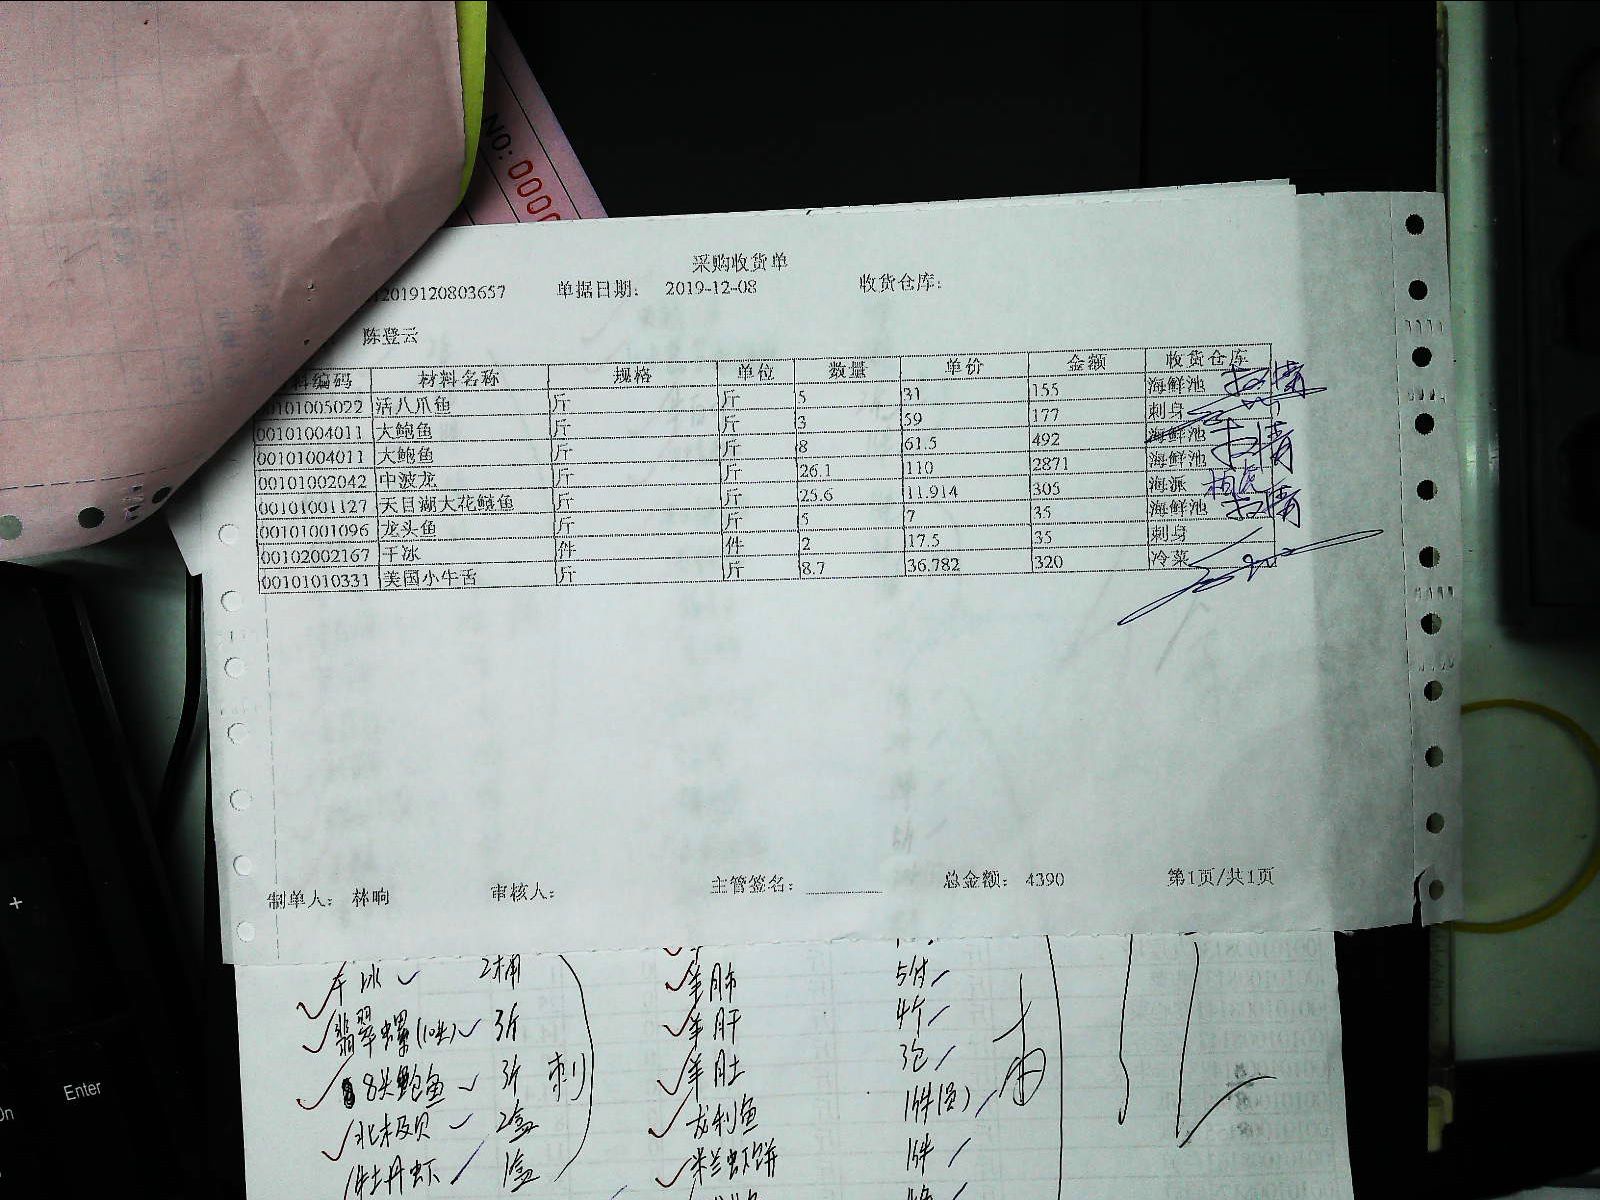 NO:0000
采购收货单
2019120803657 单据日期: 2019-12-08 收货仓库:
陈登云
料编码 材料名称 规格 单位 数量 单价 金额 收货仓库
00101005022 活八爪鱼 斤 斤 5 31 155 海鲜池
00101004011 大鲍鱼 斤 斤 3 59 177 刺身
00101004011 大鲍鱼 斤 斤 8 61.5 492 海鲜池
00101002042 中波龙 斤 斤 26.1 110 2871 海鲜池
00101001127 天目湖大花鲢鱼 斤 斤 25.6 11.914 305 海派
00101001096 龙头鱼 斤 斤 5 7 35 海鲜池
00102002167 干冰 件 件 2 17.5 35 刺身
00101010331 美国小牛舌 斤 斤 8.7 36.782 320 冷菜
制单人: 林响 审核人: 主管签名: 总金额: 4390 第1页/共1页
干冰 2桶 羊肺 5付
翡翠螺(10头) 3斤 羊肝 4个
8头鲍鱼 3斤 刺 羊肚 3包
北极贝 2盒 龙利鱼 1件
牡丹虾 1盒 米兰虾饼 1件
+
Enter